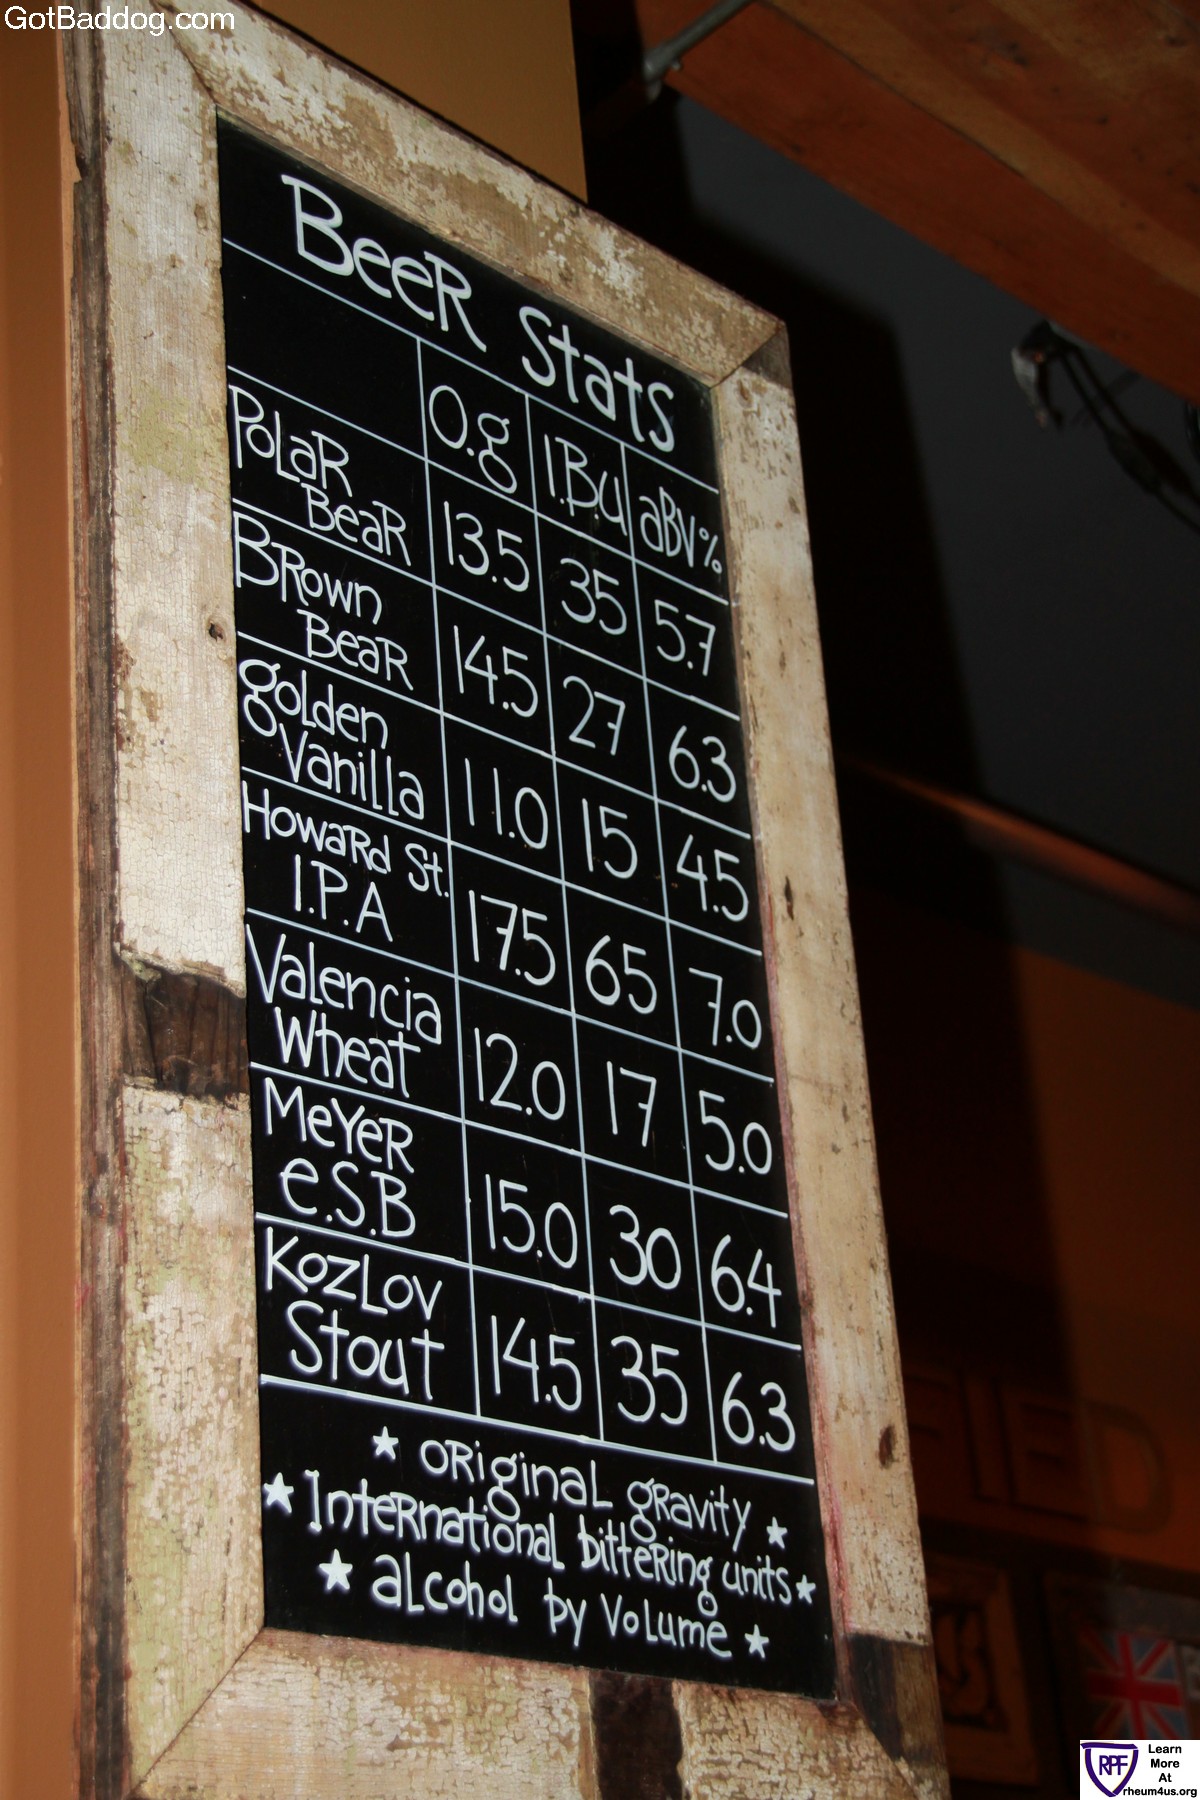 GotBaddog.com
Beer Stats
O.g I.B.U aBV%
Polar
Bear 13.5 35 5.7
Brown
Bear 14.5 27 6.3
golden
Vanilla 11.0 15 4.5
Howard St.
I.P.A 17.5 65 7.0
Valencia
Wheat 12.0 17 5.0
Meyer
e.S.B 15.0 30 6.4
Kozlov
Stout 14.5 35 6.3
★ original gravity ★
★ International bittering units ★
★ alcohol by Volume ★
RPF
Learn
More
At
rheum4us.org